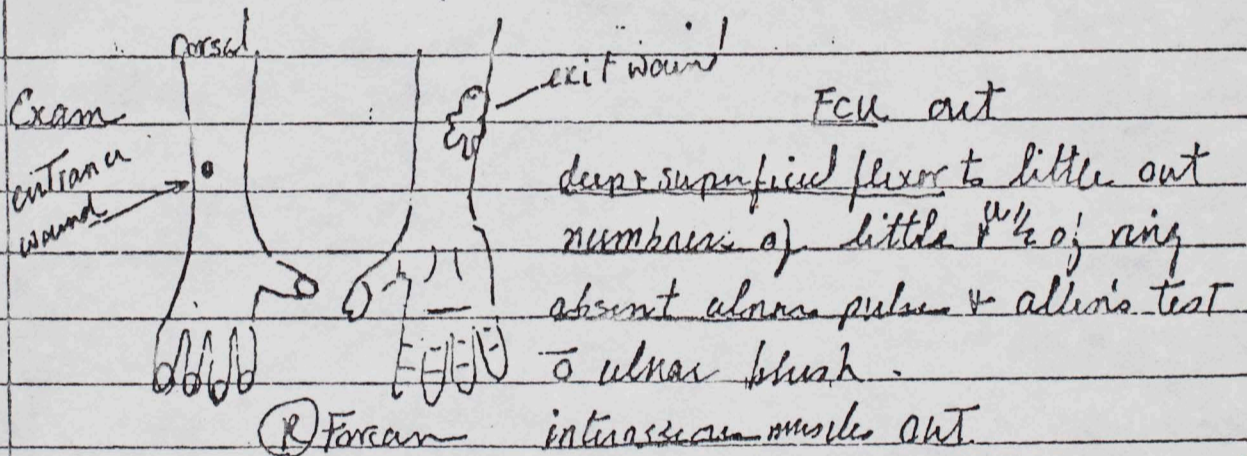 Dorsal
exit wound
Exam
FCU out
entrance
wound
deep + superficial flexor to little out
numbness of little + u 1/2 of ring
absent ulnar pulse + allen's test
ō ulnar blush.
Ⓡ Forearm
interosseous muscles out